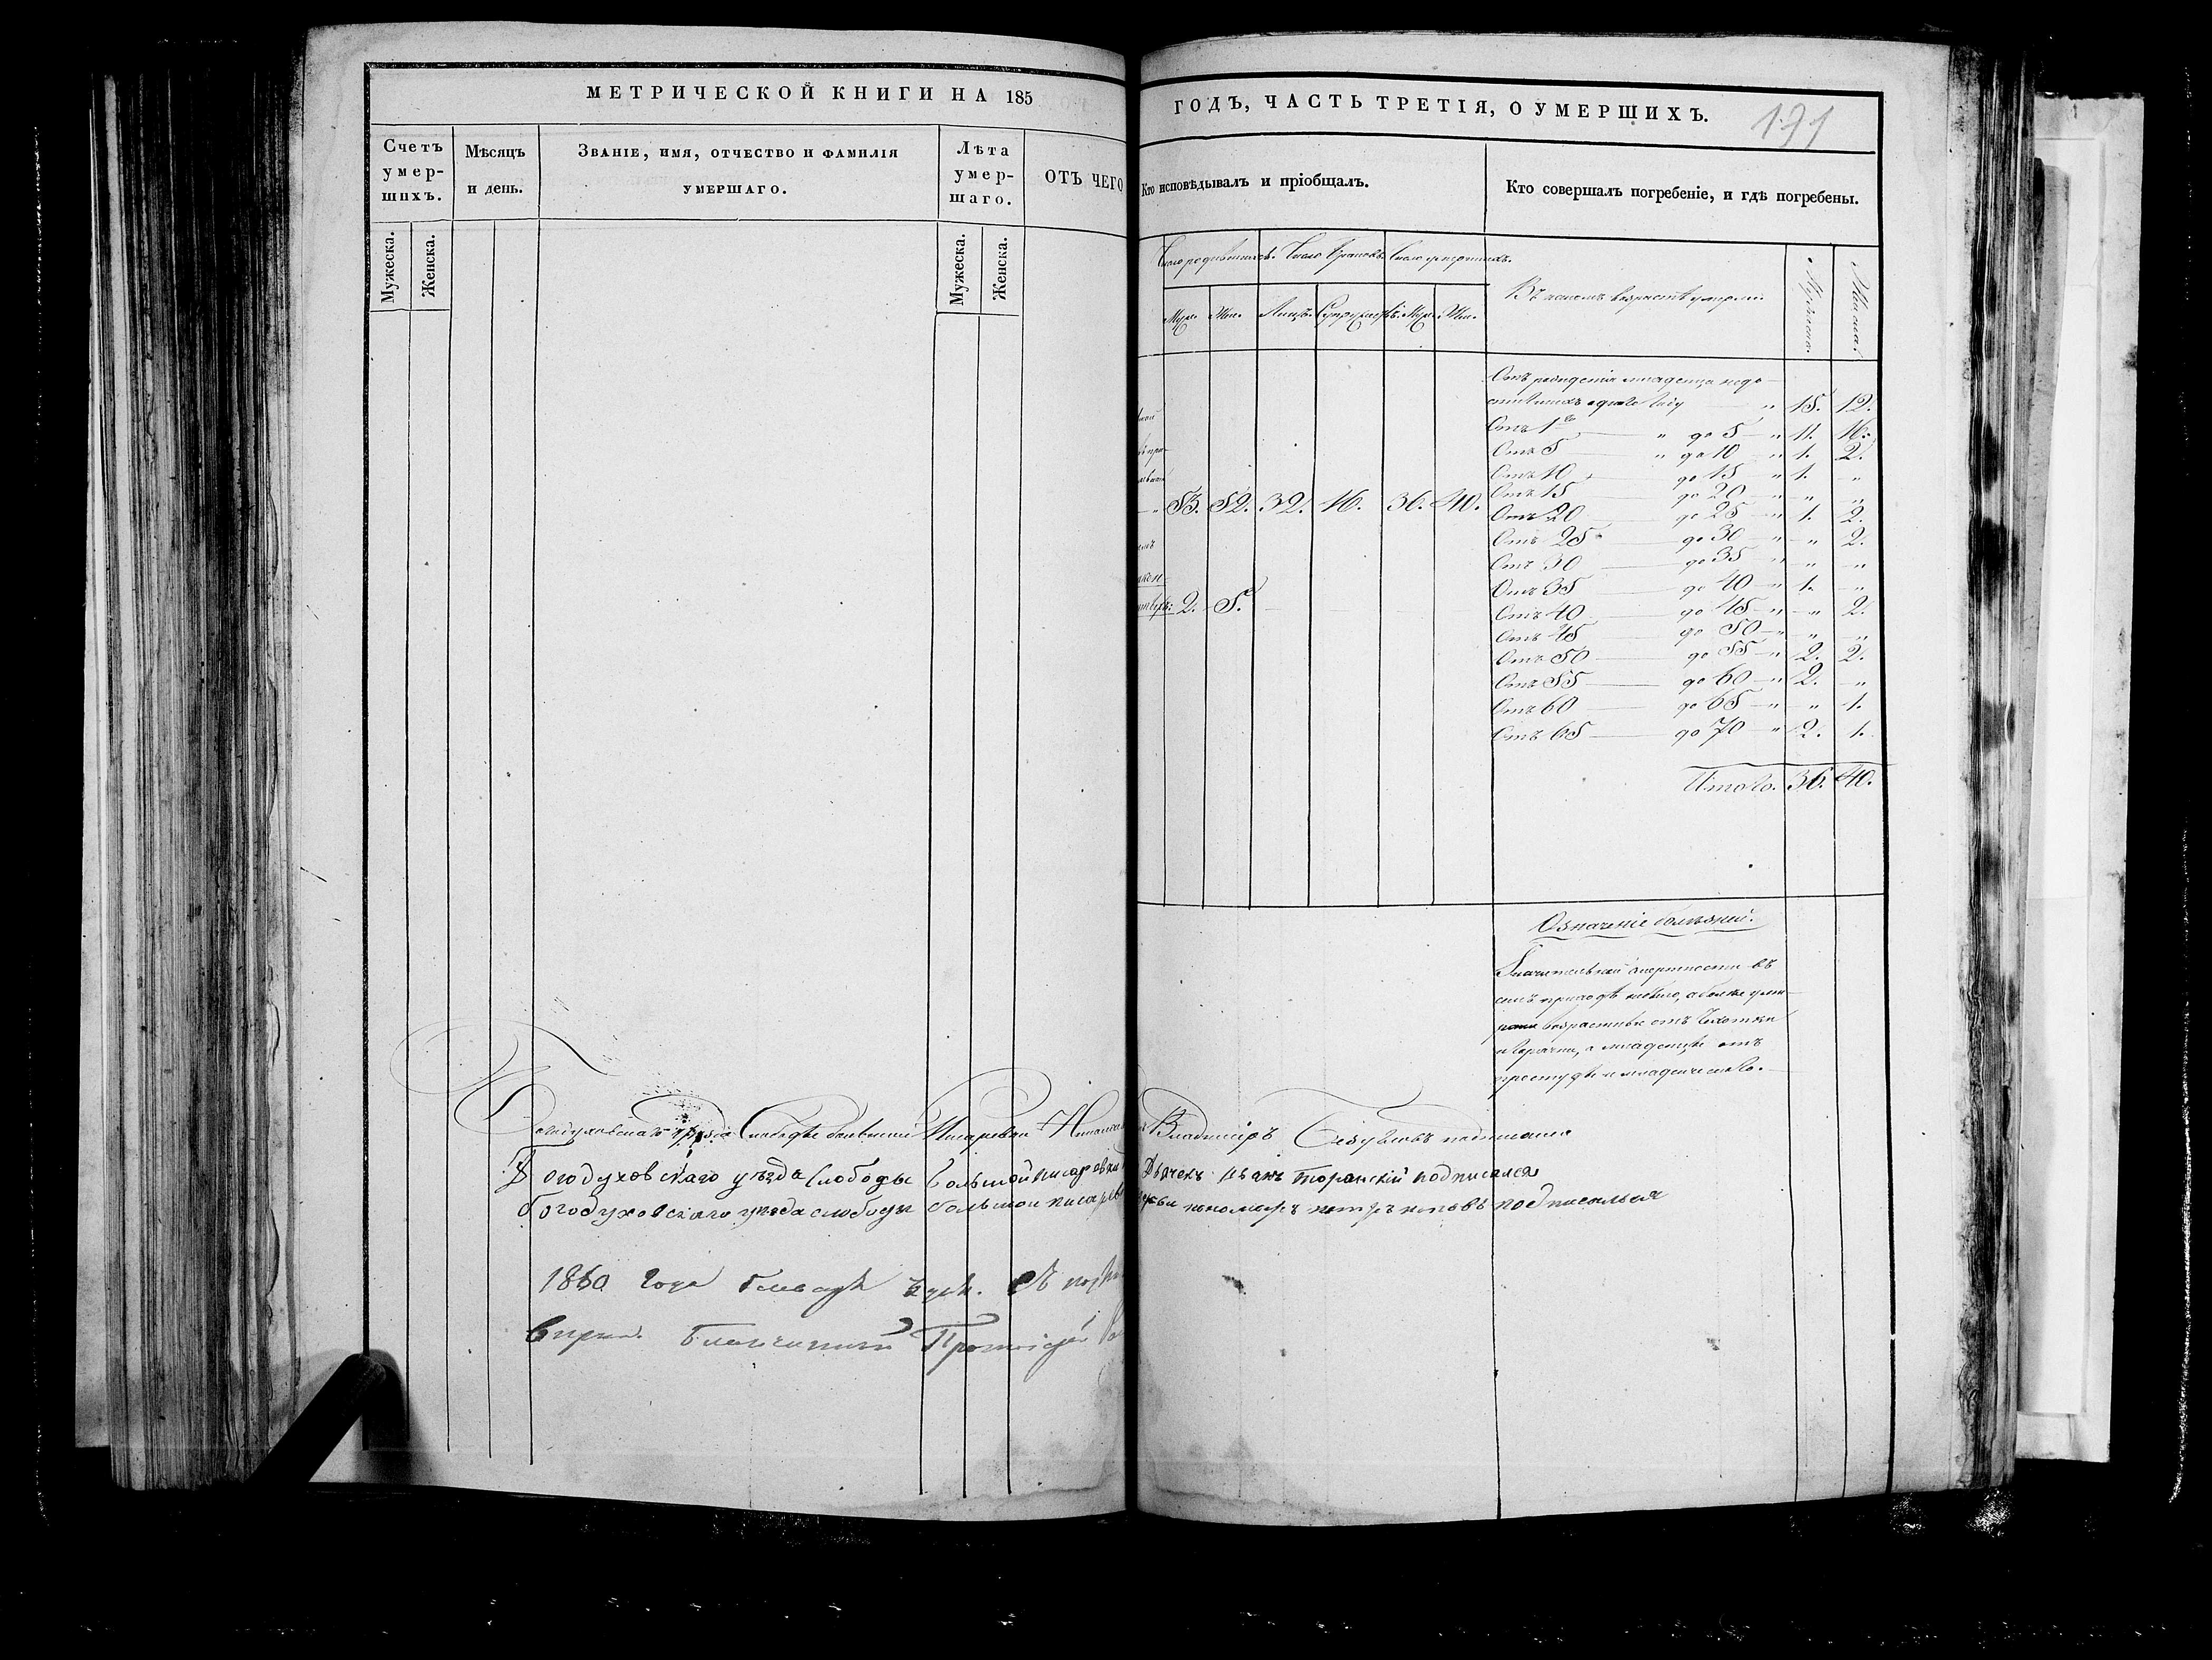 МЕТРИЧЕСКОЙ КНИГИ НА 185
Счетъ умер-шихъ.
Мѣсяцъ и день.
Званіе, имя, отчество и фамилія умершаго.
Лѣта умер-шаго.
ОТЪ ЧЕГО
Мужеска.
Женска.
Мужеска.
Женска.
Богодуховскаго уѣзда Слободы Большой Писаревки
Богодуховскаго уѣзда Слободы Большой писаревки
богодуховскаго уѣзда слободы большой писарев
1860 года
Благочинный Протоіерей
ГОДЪ, ЧАСТЬ ТРЕТІЯ, О УМЕРШИХЪ.
191
Кто исповѣдывалъ и пріобщалъ.
Кто совершалъ погребеніе, и гдѣ погребены.
Число родившихся. Число браковъ. Число умершихъ.
Муж. Жен. Лицъ. Супружествъ. Муж. Жен.
Въ какомъ возрастѣ умерли.
Мужеска.
Женска.
Отъ рожденія младенца недо-
стигшихъ одного году " 15. 12.
Отъ 1го " до 5 " 11. 16.
Отъ 5 " до 10 " 1. 2.
Отъ 10 до 15 " 1. "
Отъ 15 до 20 " " "
Отъ 20 до 25 " 1. 2.
Отъ 25 до 30 " " 2.
Отъ 30 до 35 " " "
Отъ 35 до 40 " 1. "
Отъ 40 до 45 " " 2.
Отъ 45 до 50 " " "
Отъ 50 до 55 " 2. 2.
Отъ 55 до 60 " 2. "
Отъ 60 до 65 " " 1.
Отъ 65 до 70 " 2. 1.
Итого. 36. 40.
53. 52. 32. 16. 36. 40.
2. 5.
Означеніе болѣзней.
Значительной смертности въ
семъ приходѣ небыло, а болѣе уми-
рали возрастные отъ Чахотки
и Горячки, а младенцы отъ
простуды и младенческаго.
Владиміръ подписался
Дьячекъ Иванъ Торанскій подписался
пономарь петръ поповъ подписался